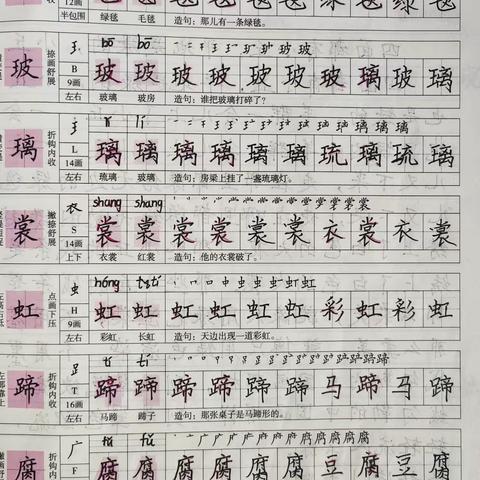 12画 毯 毯 毯 毯 毯 绿 毯 绿 毯
半包围 绿毯 毛毯 造句：那儿有一条绿毯。
玻 捺画舒展 王 bō bō 玻 玻
B 玻 玻 玻 玻 玻 玻 玻 璃 玻 璃
9画
左右 玻璃 玻房 造句：谁把玻璃打碎了？
璃 折钩内收 王 lí lí 璃 璃 璃 璃
L 璃 璃 璃 璃 璃 璃 琉 璃 琉 璃
14画
左右 琉璃 玻璃 造句：房梁上挂了一盏琉璃灯。
裳 撇捺舒展 衣 shang shang 裳 裳 裳
S 裳 裳 裳 裳 裳 裳 衣 裳 衣 裳
14画
上下 衣裳 红裳 造句：他的衣裳破了。
虹 点画下压 虫 hóng 口 中 虫 虫 虹 虹 虹
H 虹 虹 虹 虹 虹 虹 彩 虹 彩 虹
9画
左右 彩虹 长虹 造句：天边出现一道彩虹。
蹄 折钩内收 tí tí 蹄 蹄 蹄
T 蹄 蹄 蹄 蹄 蹄 蹄 马 蹄 马 蹄
16画
左右 马蹄 蹄子 造句：那张桌子是马蹄形的。
腐 折钩内收 广 fǔ fǔ 广 府 府 腐 腐 腐
F 腐 腐 腐 腐 腐 腐 豆 腐 豆 腐